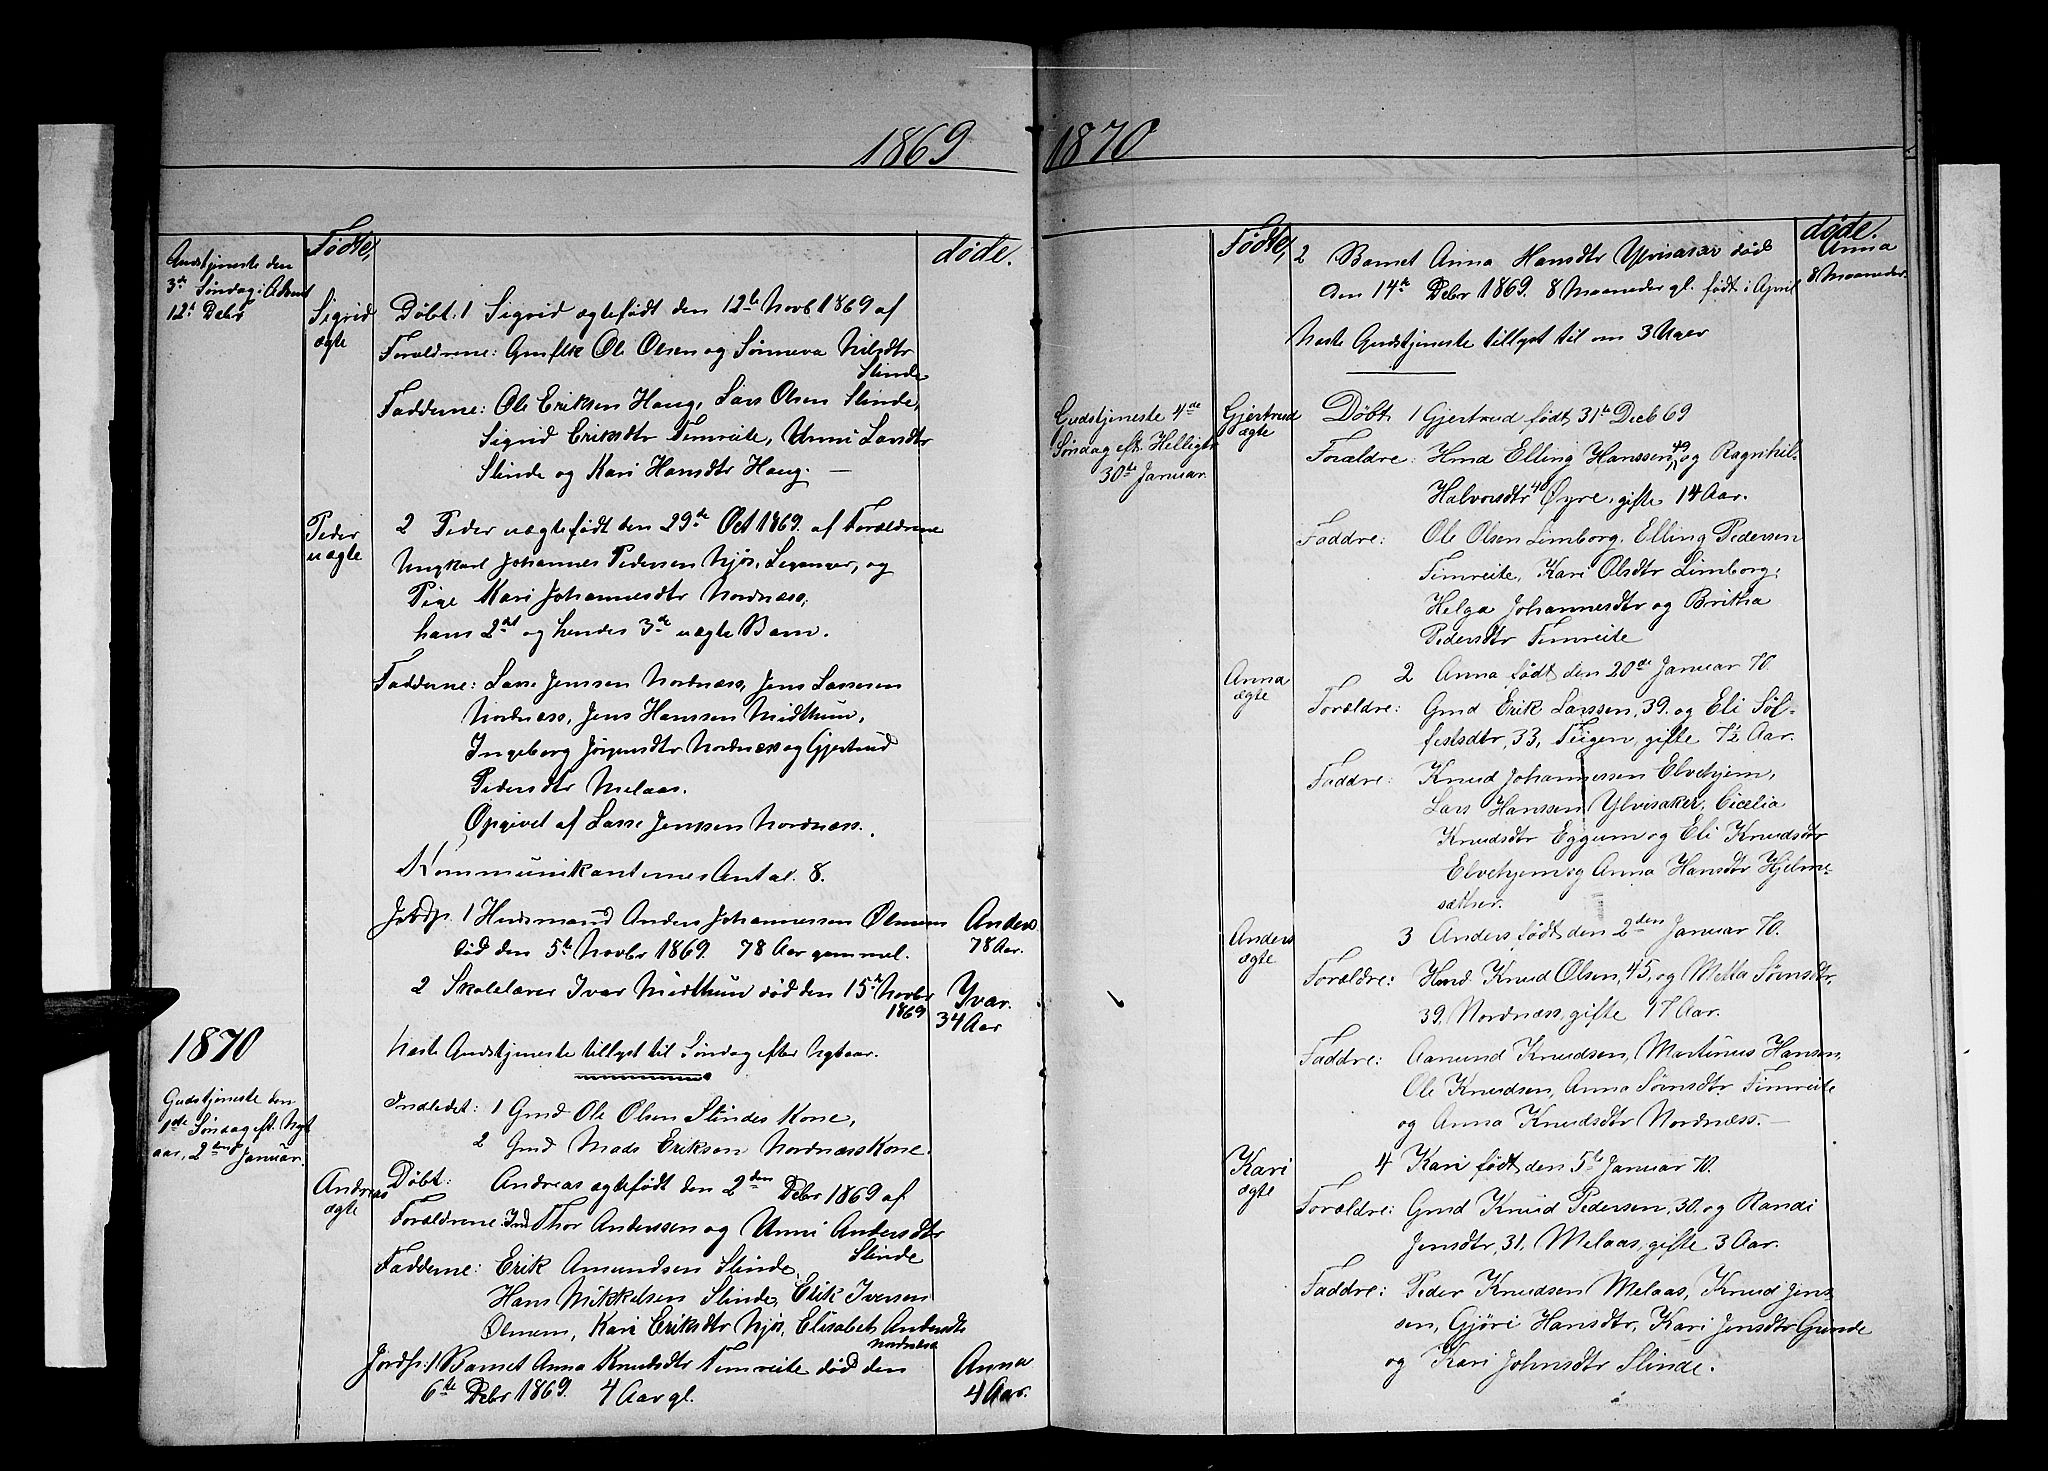 1869
Fødte,
døde.
Gudstjeneste den
3de Søndag i Advent
12te Debr
Sigrid
ægte
Døbt: 1 Sigrid ægtefødt den 12te Novb 1869 af
Forældrene: Gmflk Ole Olsen og Sønneva Nilsdtr
Slinde
Fadderne: Ole Eriksen Haug, Lars Olsen Slinde,
Sigrid Eriksdtr Timreite, Unni Larsdtr
Slinde og Kari Hansdtr Haug. —
Peder
uægte
2 Peder uægtefødt den 29de Oct 1869. af Forældrene
Ungkarl Johannes Pedersen Njøs, Leganger, og
Pige Kari Johannesdtr Nordnæss,
hans 2det og hendes 3de uægte Barn.
Fadderne: Lasse Jenssen Nordnæss, Jens Lassesen
Nordnæss, Jens Hanssen Midthun,
Ingeborg Jørgensdtr Nordnæss og Gjertrud
Pedersdtr Melaas.
Opgivet af Lasse Jenssen Nordnæss.
Kommunikanternes Antal. 8.
Jordp. 1 Husmand Anders Johannessen Ølmem
død den 5te Novbr 1869. 78 Aar gammel.
Anders
78 Aar.
2 Skolelærer Ivar Midthun død den 15de Novbr
1869
Yvar.
34 Aar
Næste Gudstjeneste tillyst til Søndag efter Nytaar.
1870
Gudstjeneste den
1ste Søndag eft. Nyt
aar, 2den Januar.
Indledet: 1 Gmd Ole Olsen Slindes Kone,
2 Gmd Mads Eriksen Nordnæss Kone.
Andreas
ægte
Døbt: Andreas ægtefødt den 2den Debr 1869 af
Forældrene: Ind Thor Anderssen og Unni Andersdtr
Slinde
Fadderne: Erik Amundsen Slinde,
Hans Mikkelsen Slinde, Erik Iversen
Ølmem, Kari Eriksdtr Njøs, Elisabeth Andersdtr
Nordnæss
Jordp: 1 Barnet Anna Knutsdtr Timreite død den
6te Debr 1869. 4 Aar gl.
Anna
4 Aar.
1870
Fødte,
døde.
2 Barnet Anna Hansdtr Ylvisaker død
den 14de Debr 1869. 8 Maaneder gl. født i April
Anna
8 Maaneder
Næste Gudstjeneste tillyst til om 3 Uger
Gudstjeneste 4de
Søndag eft. Helligtr
30te Januar.
Gjertrud
ægte
Døbt 1 Gjertrud født 31te Decb 69
Forældre: Hmd Elling Hanssen, 49 og Ragnhil-
Halvorsdtr 40 Øyre, gifte 14 Aar.
Faddre: Ole Olsen Limborg, Elling Pedersen
Timreite, Kari Olsdtr Limborg,
Helga Johannesdtr og Britha
Pedersdtr Timreite
Anna
ægte
2 Anna født den 20de Januar 70.
Forældre: Gmd Erik Larssen, 39. og Eli Søl-
festsdtr, 33, Teigen, gifte 7½ Aar.
Faddre: Knud Johannessen Elvehjem,
Lars Hanssen Ylvisaker, Cicelia
Knudsdtr Eggum og Eli Knudsdtr
Elvehjem og Anna Hansdtr Hjelme-
sæther.
Anders
ægte
3 Anders født den 2den Januar 70.
Forældre: Hmd. Knud Olsen, 45, og Metta Sømsdtr,
39. Nordnæss, gifte 17 Aar.
Faddre: Aamund Knudsen, Martinus Hansen,
Ole Knudsen, Anna Sømsdtr Timreite
og Anna Knudsdtr Nordnæss. —
Kari
ægte
4 Kari født den 5te Januar 70.
Forældre: Gmd Knud Pedersen, 30. og Randi
Jensdtr, 31, Melaas, gifte 3 Aar.
Faddre: Peder Knudsen Melaas, Knud Jens-
sen, Gjøri Hansdtr, Kari Jensdtr Grinde
og Kari Johnsdtr Slinde.